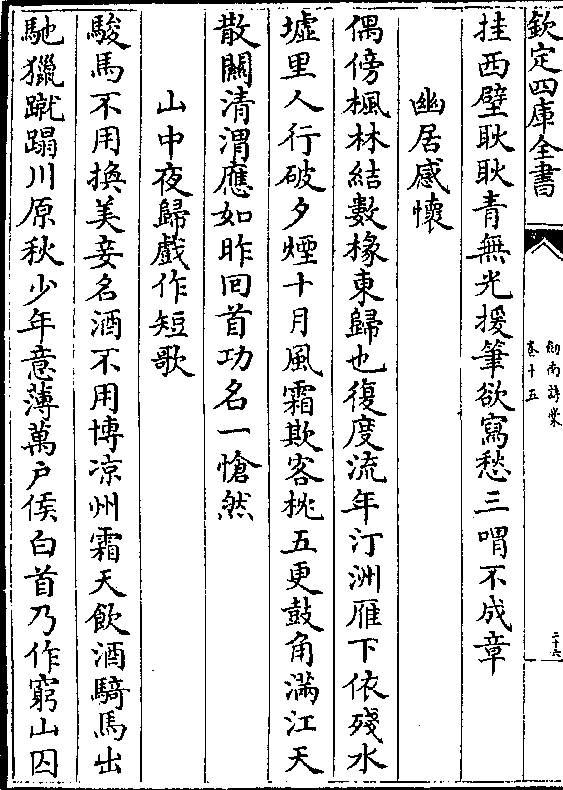 欽定四庫全書
劒南詩藁
卷十五
二十六
挂西壁耿耿青無光援筆欲寫愁三喟不成章
幽居感懷
偶傍楓林結數椽東歸也復度流年汀洲雁下依殘水
墟里人行破夕煙十月風霜欺客枕五更鼓角滿江天
散關清渭應如昨回首功名一愴然
山中夜歸戲作短歌
駿馬不用換美妾名酒不用博凉州霜天飲酒騎馬出
馳獵蹴蹋川原秋少年意薄萬户侯白首乃作窮山囚